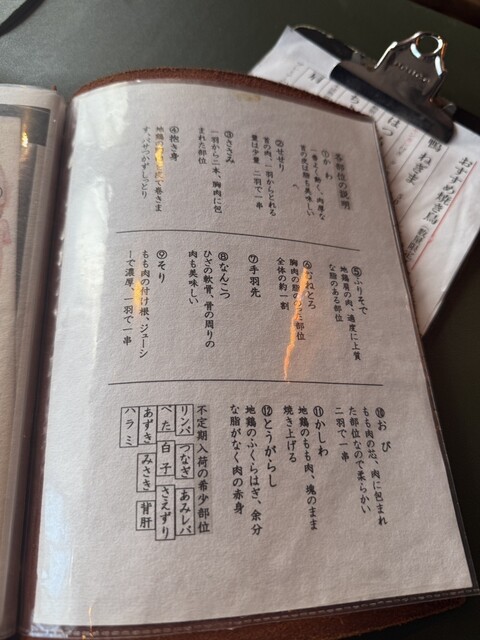 各部位の説明
①かわ
一番よく動く、肉厚な
首の皮は脂も美味しい
②せせり
首の肉、一羽からとれる
量は少量 二羽で一串
③ささみ
一羽から二本、胸肉に包
まれた部位
④抱き身
地鶏の
で巻きま
す、パサつかずしっとり
⑤ふりそで
地鶏肩の肉、適度に上質
な脂のある部位
⑥むねとろ
胸肉の脂の
った部位
全体の約一割
⑦手羽先
⑧なんこつ
ひざの軟骨、骨の周りの
肉も美味しい
⑨そり
もも肉の付け根、ジューシ
ーで濃厚、一羽で一串
⑩おび
もも肉の芯、肉に包まれ
た部位なので柔らかい
二羽で一串
⑪かしわ
地鶏のもも肉、塊のまま
焼き上げる
⑫とうがらし
地鶏のふくらはぎ、余分
な脂がなく肉の赤身
不定期入荷の希少部位
リンパ つなぎ あみレバ
べた 白子 さえずり
あずき みさき 背肝
ハラミ
おすすめ焼き鳥
鴨 ねぎま
はつ